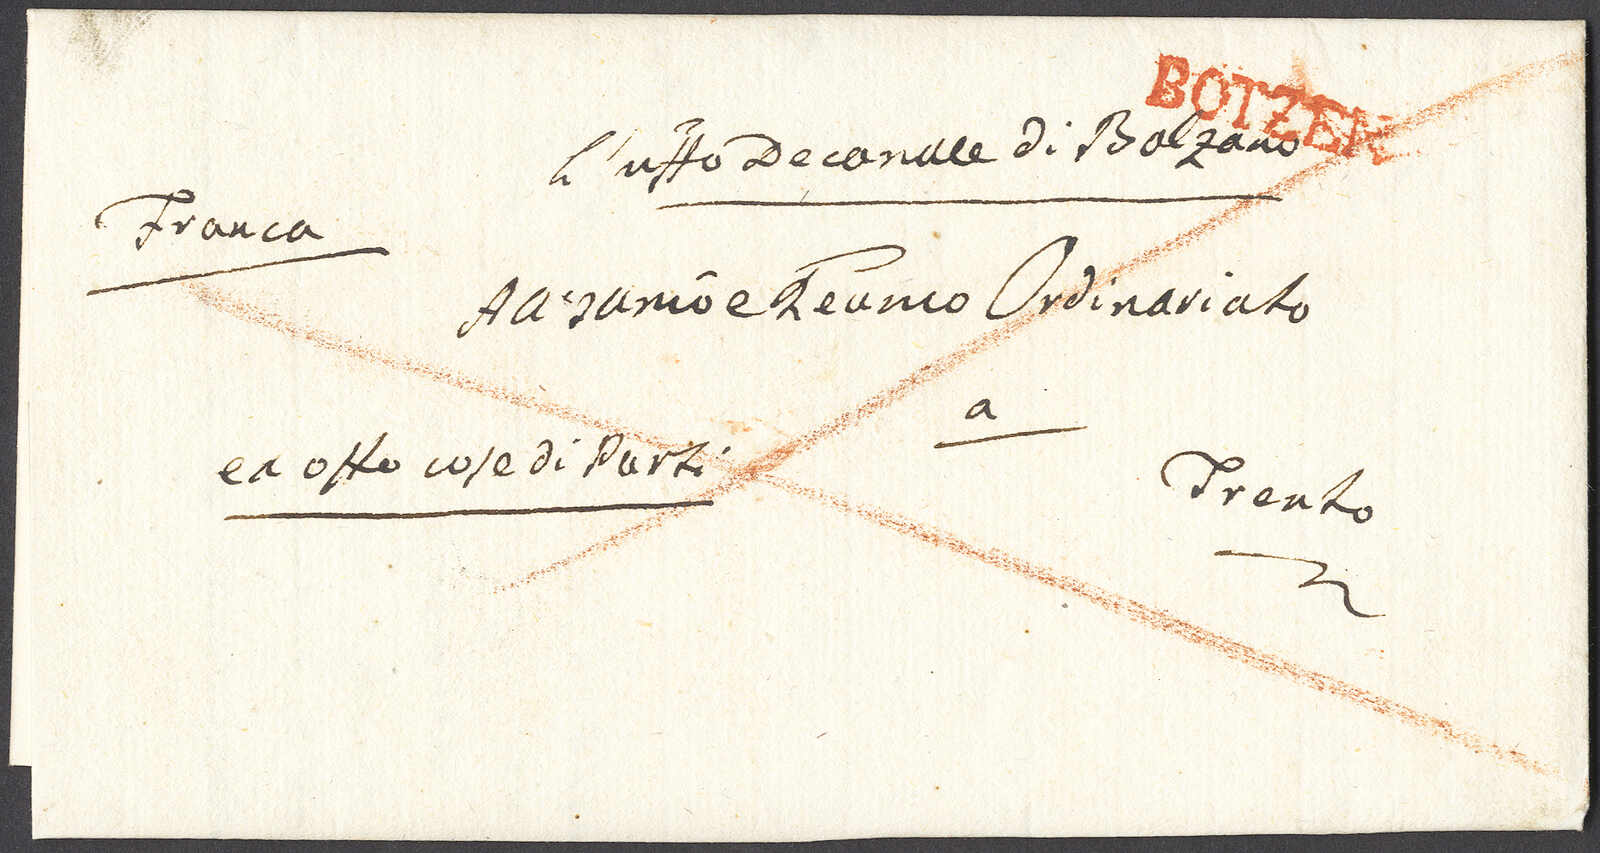 BOTZEN
L'uffo Decanale di Bolzano
Franca
Ordinariato
a
ex offo cose di Parti
Trento